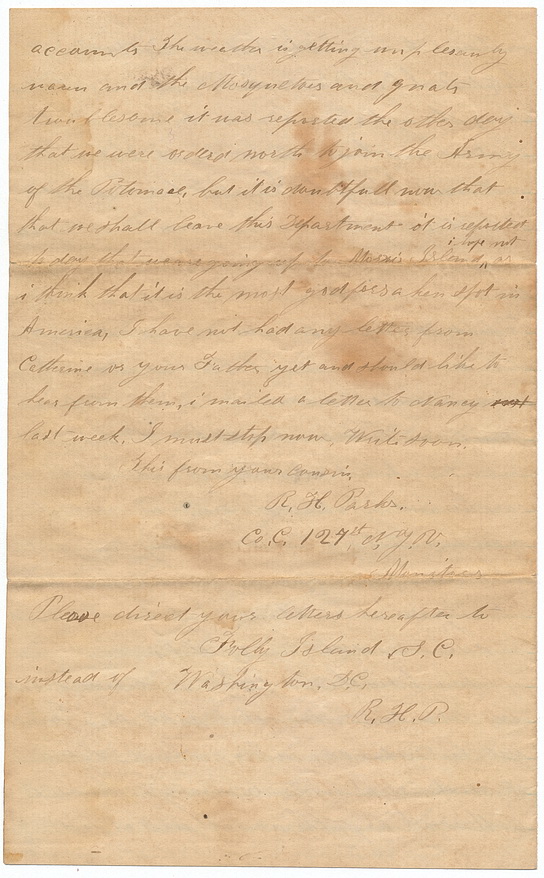 accounts The weather is getting unplesantly
warm and the Mosquetoes and gnats
troublesome it was reported the other day
that we were orderd north to join the Army
of the Potomac, but it is doubtfull now that
that we shall leave this Department it is reported
i hope not
to day that we are going up to Morris Island, as
i think that it is the most godforsaken spot in
America, I have not had any letter from
Catherine or your Father yet and should like to
hear from them, i mailed a letter to Nancy
last week. I must stop now, Write soon.
This from your cousin,
R. H. Parks.
Co. C. 127st N. Y. V.
Monitors
Please direct your letters hereafter to
Folly Island, S. C.
instead of Washington, D.C.
R. H. P.